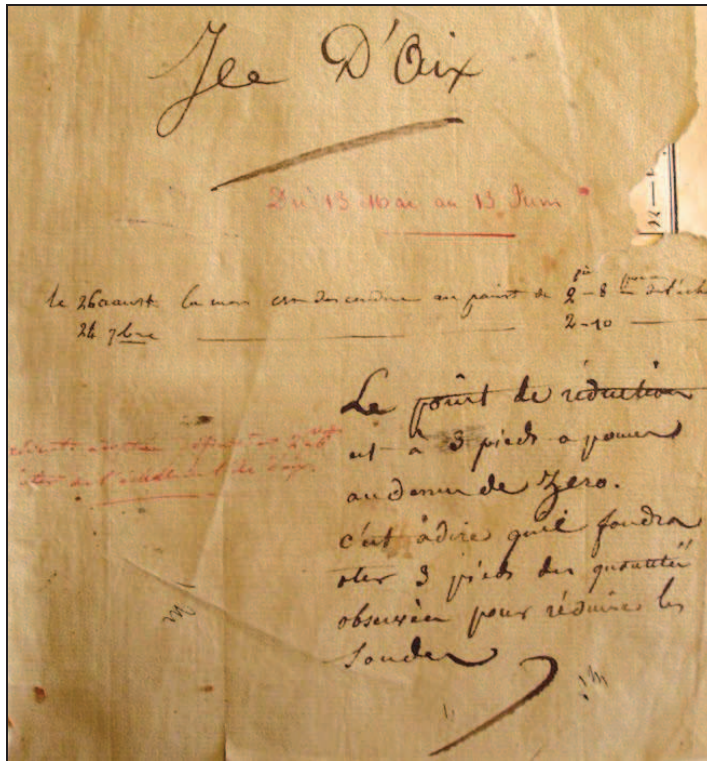 Jle D'Aix
Du 13 Mai au 13 Juin
le 26 aoust la mer est descendue au point de 2 - 8 de l'éch
24 7bre 2 - 10
Le point de réduction
est à 3 pieds 0 pouces
au dessus de Zero.
c'est àdire qu'il faudra
oter 3 pieds des quantités
observées pour réduire les
Sondes